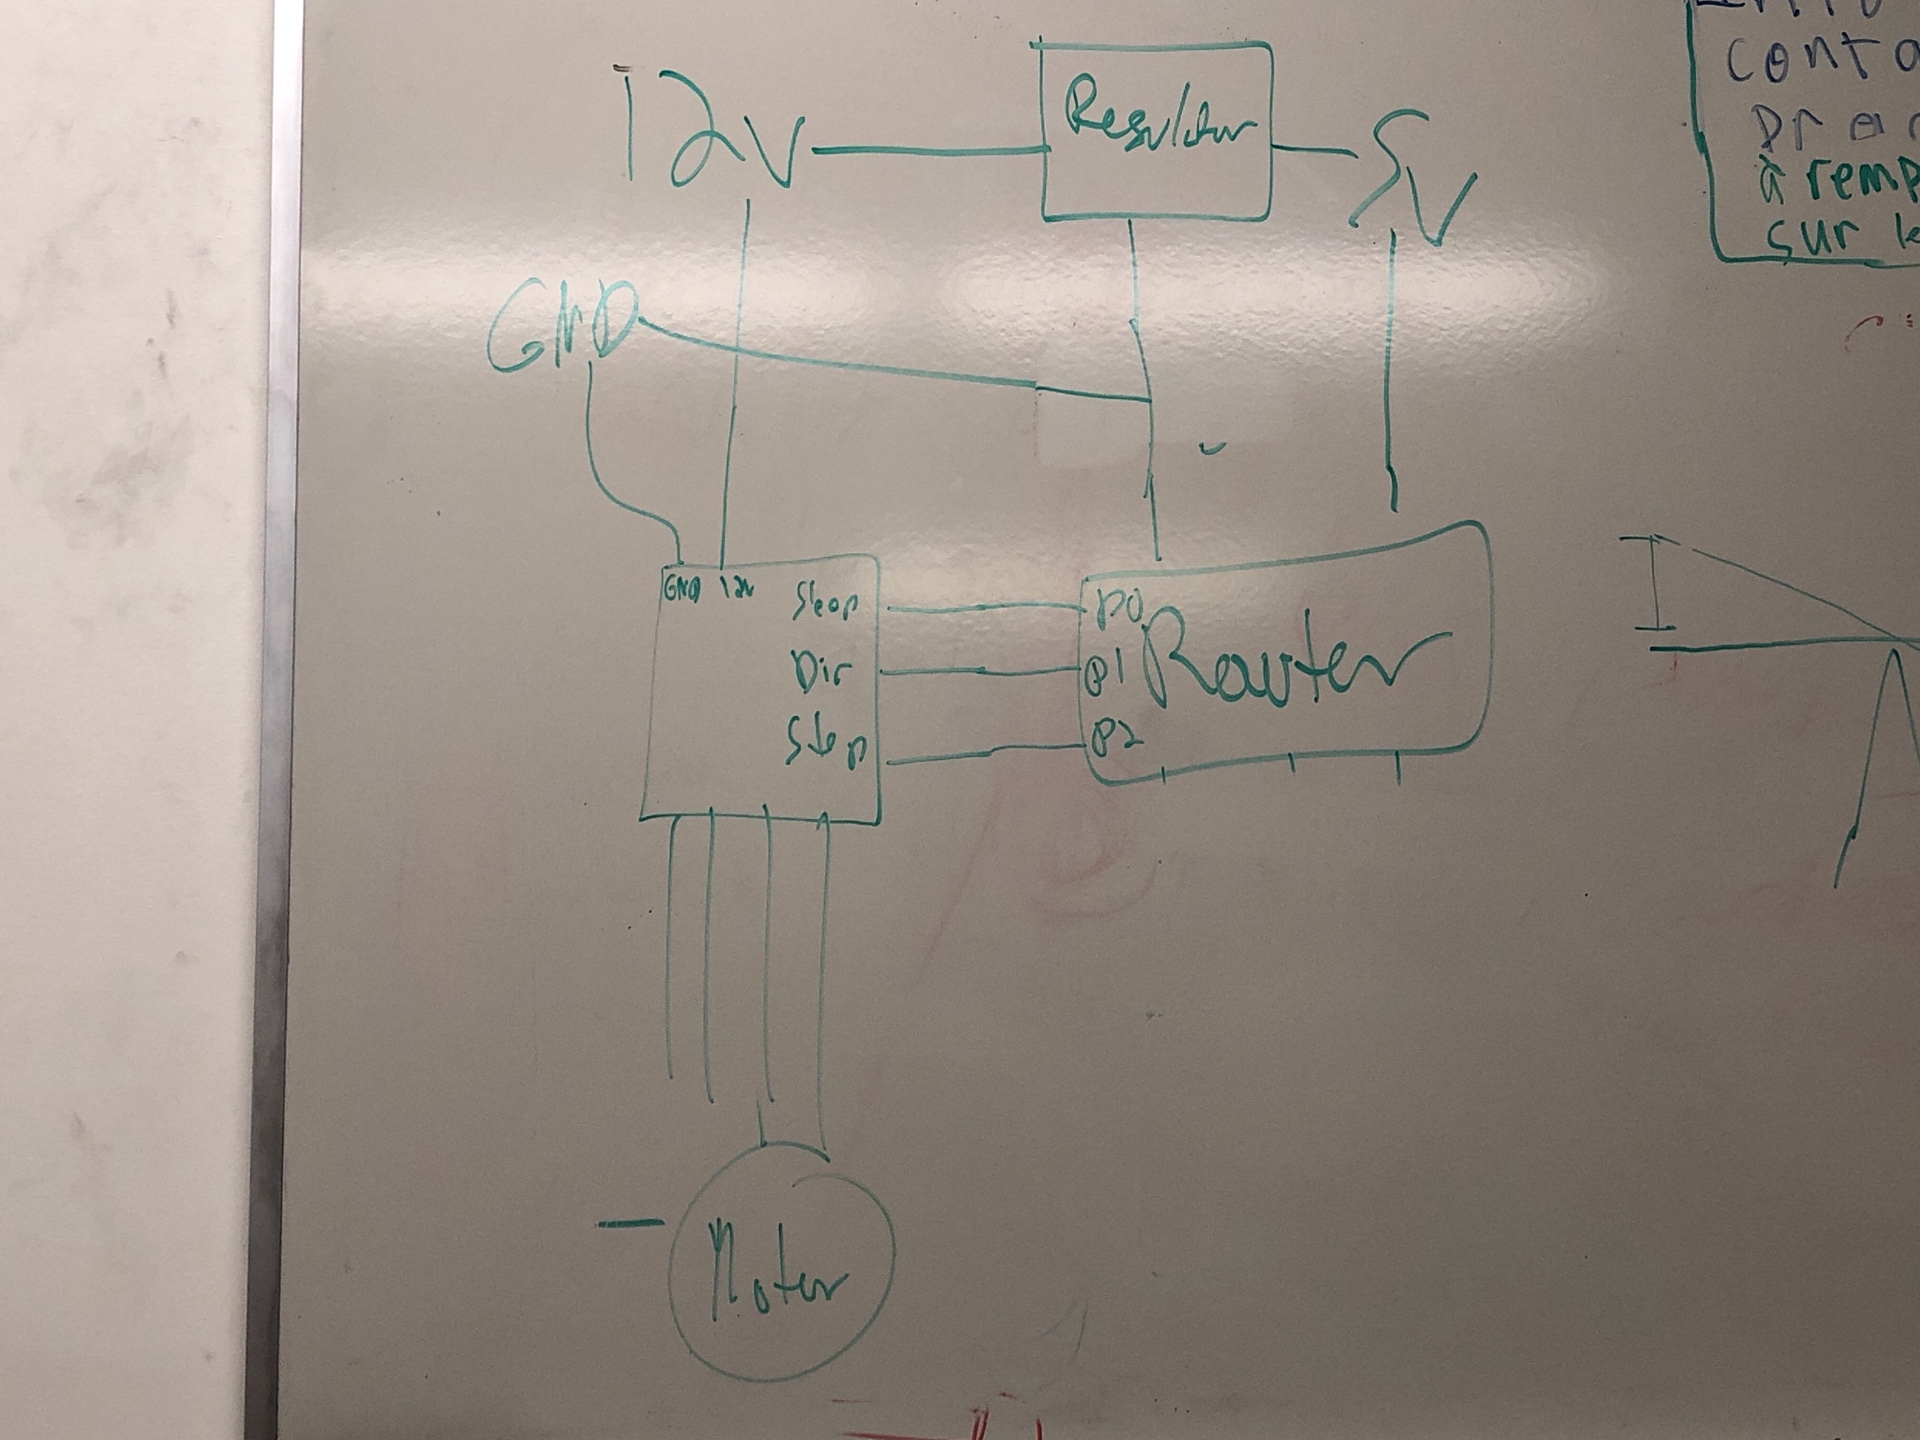 12V
Regulator
5V
GND
GND 12V
Sleep
Dir
Step
P0
P1
P2
Router
Motor
conta
à remp
sur le